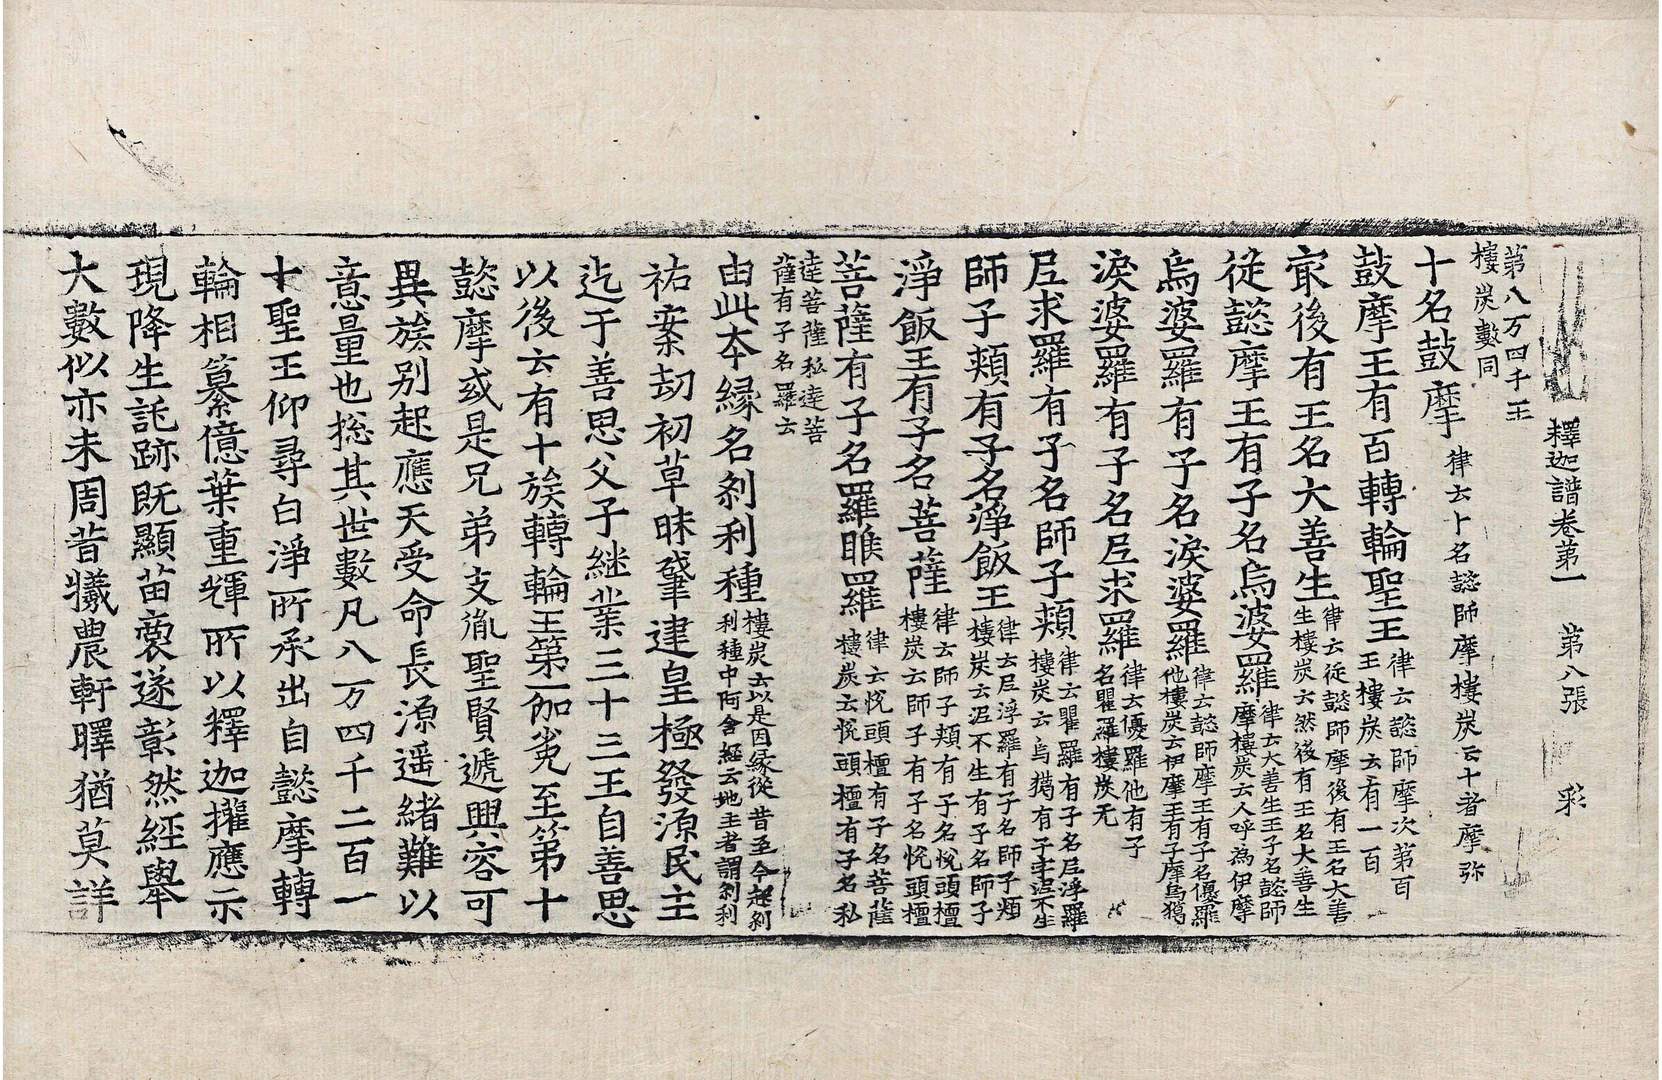 釋迦譜卷第一　第八張　彩
第八万四千王
樓炭數同
十名鼓摩
律云十名懿師摩樓炭云十者摩弥
鼓摩王有百轉輪聖王
律云懿師摩次第百
王樓炭云有一百
㝡後有王名大善生
律云從懿師摩後有王名大善
生樓炭云然後有王名大善生
從懿摩王有子名烏婆羅
律云大善生王子名懿師
摩樓炭云人呼為伊摩
烏婆羅有子名淚婆羅
律云懿師摩王有子名優羅
他樓炭云伊摩王有子摩烏獦
淚婆羅有子名尼求羅
律云優羅他有子
名瞿羅樓炭无
尼求羅有子名師子頰
律云瞿羅有子名尼浮羅
樓炭云烏獦有子李涺不生
師子頰有子名淨飯王
律云尼浮羅有子名師子頰
樓炭云涺不生有子名師子
淨飯王有子名菩薩
律云師子頰有子名悅頭檀
樓炭云師子有子名悅頭檀
菩薩有子名羅睺羅
律云悅頭檀有子名菩薩
樓炭云悅頭檀有子名私
達菩薩私達菩
薩有子名羅云
由此本縁名剎利種
樓炭云以是因縁從昔至今起剎
利種中阿含經云地主者謂剎利
祐案劫初草昧肇建皇極發源民主
迄于善思父子継業三十三王自善思
以後云有十族轉輪王第一伽㝹至第十
懿摩或是兄弟支胤聖賢遞興容可
異族别起應天受命長源遥緒難以
意量也㧾其世數凡八万四千二百一
十聖王仰尋白淨所承出自懿摩轉
輪相纂億葉重輝所以釋迦擁應示
現降生託跡既顯苗裔遂彰然經舉
大數似亦未周昔犧農軒曎猶莫詳